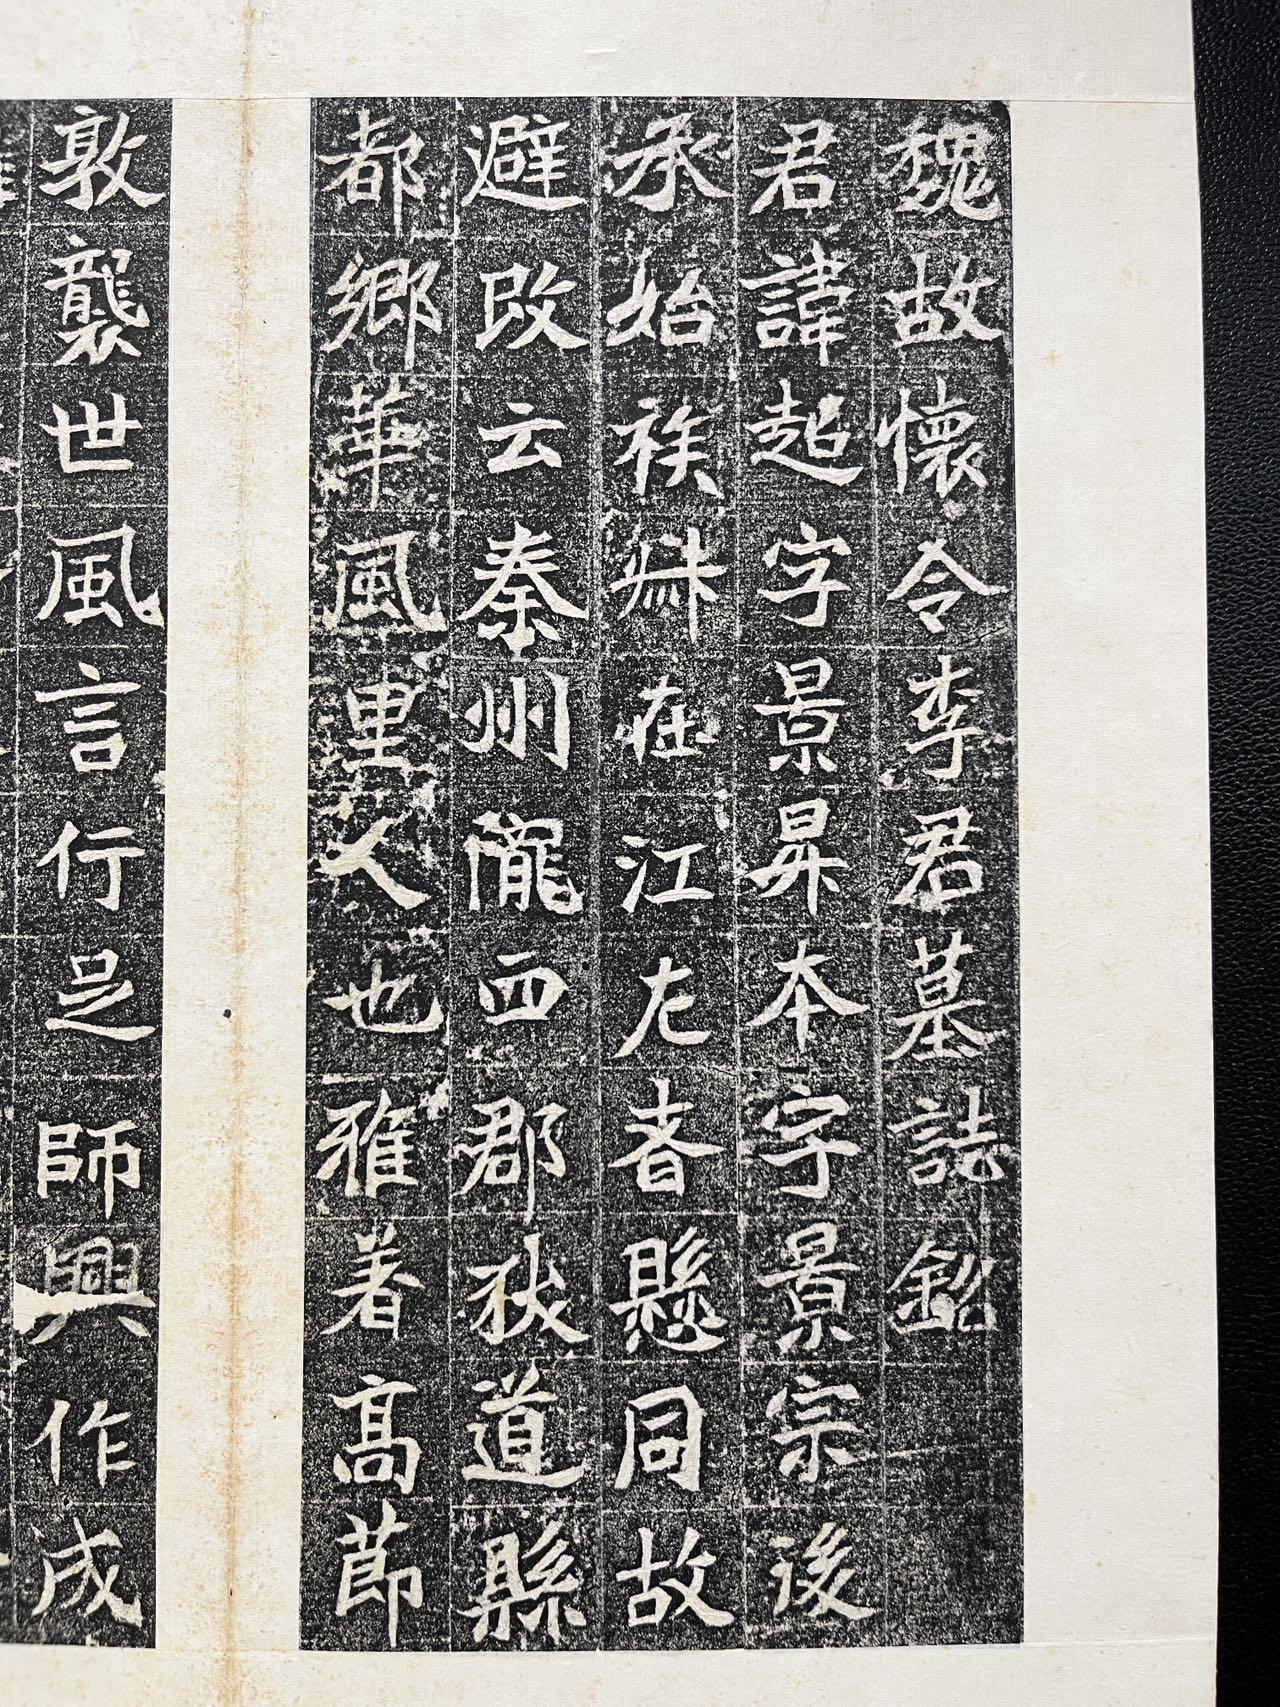 魏故懷令李君墓誌銘
君諱超字景昇本字景宗後
承始族叔在江左者懸同故
避改云秦州隴西郡狄道縣
都鄉華風里人也雅著高節
敦襲世風言行足師興作成